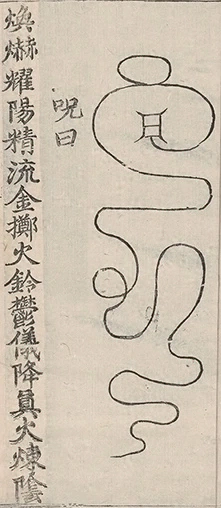 呪曰
煥爀耀陽精流金擲火鈴鬱儀降眞火煉陰